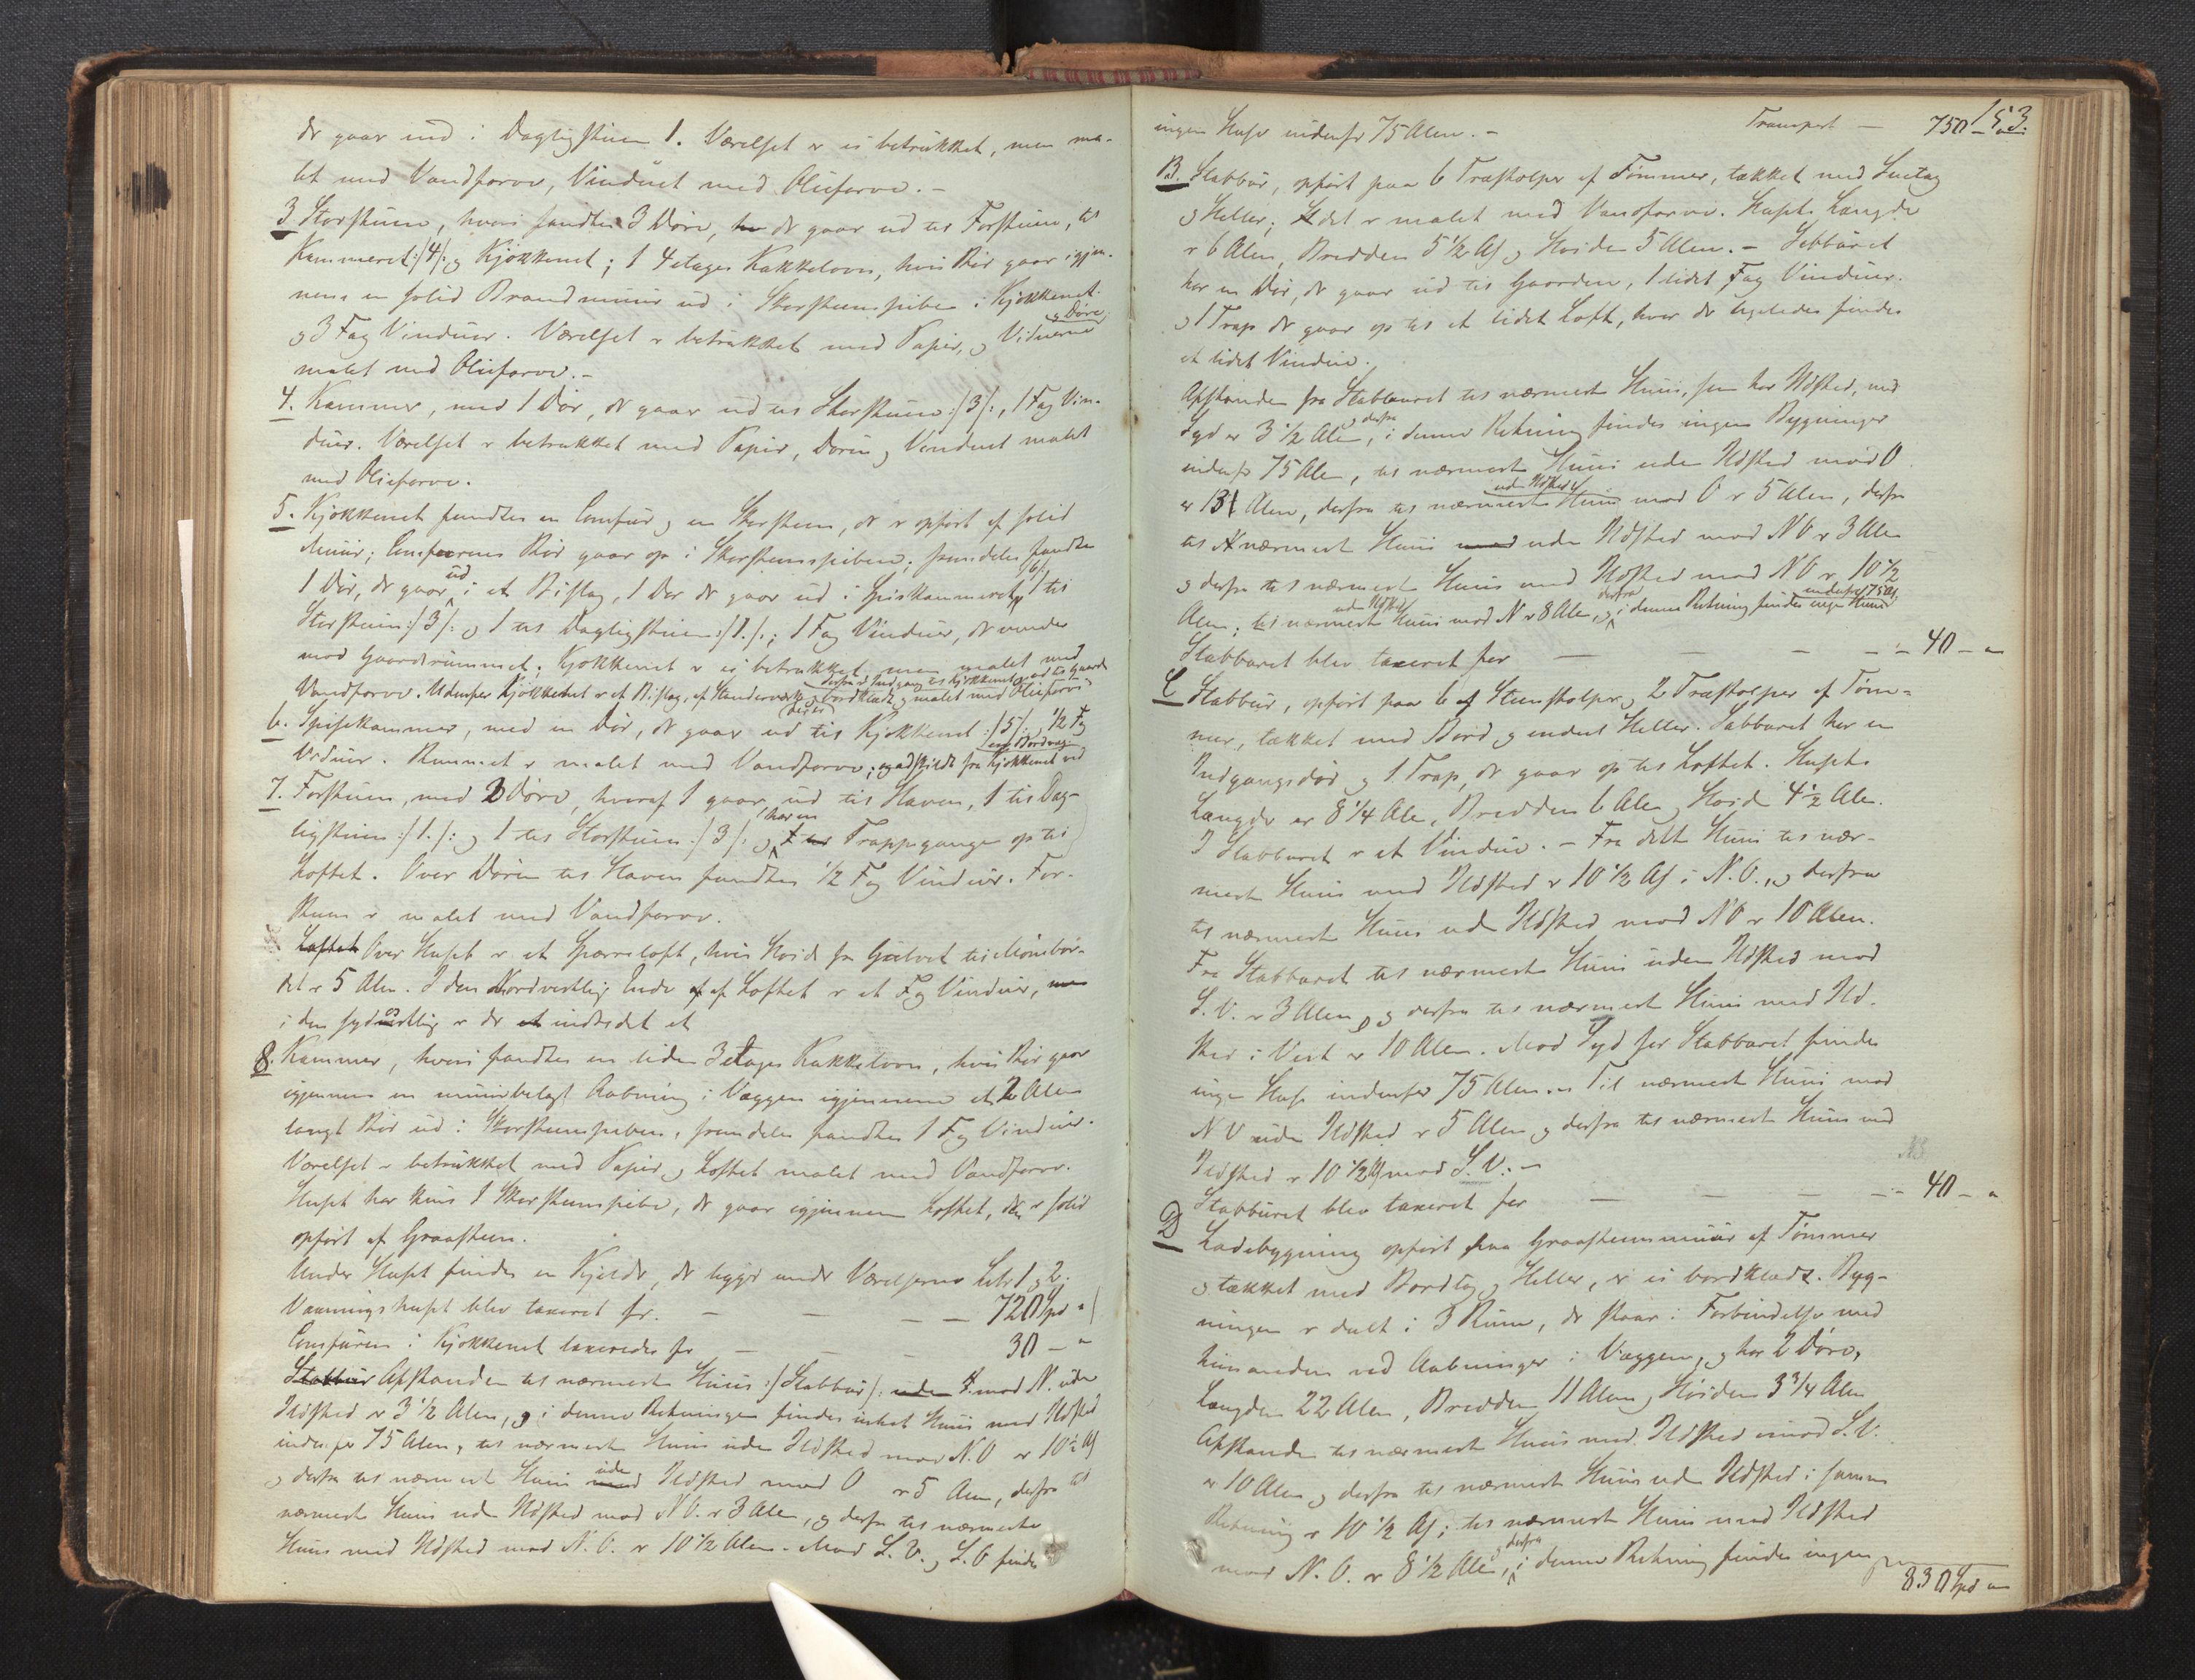 der gaar ind i Dagligstuen 1. Værelset er ei betrukket, men ma-
let med Vandfarve, Vinduet med Oliefarve. -
3 Storstuen, hvori fandtes 3 Døre, der gaar ud til Forstuen, til
Kammeret :/4/: og Kjøkkenet; 1 4etages Kakkelovn, hvis Rør gaar igjen-
nem en solid Brandmuur ud i Skorsteenspiben i Kjøkkenet
og 3 Fag Vinduer. Værelset er betrukket med Papir, og Viduerne og Døre
malet med Oliefarve. -
4. Kammer, med 1 Dør, der gaar ud til Storstuen :/3/:, 1 Fag Vin-
duer. Værelset er betrukket med Papir, Døren og Vinduet malet
med Oliefarve.
5. Kjøkkenet fandtes en Comfur og en Skorsteen, der er opført af solid
Muur; Comfurens Rør gaar op i Skorsteenspiben; fremdeles fandtes
1 Dør, der gaar ud i et Bislag, 1 Dør der gaar ud i Spiskammeret /6/, 1 til
Storstuen :/3/: og 1 til Dagligstuen :/1./:; 1 Fag Vinduer, der vender
mod Gaardsrummet. Kjøkkenet er ei betrukket men malet med
Vandfarve. Udenfor Kjøkkenet er et Bislag, af Stenderværk og bordklædt, og malet med Oliefarve derfra er Indgang til Kjøkkenet og ud til Gaarden
6. Spisekammer, med en Dør, der gaar ud til Kjøkkenet :/5/:, ½ Fag
Vinduer. Rummet er malet med Vandfarve; og adskildt fra Kjøkkenet ved en Bordvæg
7. Forstuen, med 3 Døre, hvoraf 1 gaar ud til Haven, 1 til Dag-
ligstuen :/1./: og 1 til Storstuen :/3/: og har en Trappegange op til
Loftet. Over Døren til Haven fandtes ½ Fag Vinduer. For-
stuen er malet med Vandfarve.
Loftet Over Huset er et Sperreloft, hvis Høide fra Gulvet til Mønsbor-
det er 5 Alen. I den Nordvestlige Ende af Loftet er et Fag Vinduer,
i den sydostlige er der indredet et
8. Kammer, hvori fandtes en liden 3etages Kakkelovn, hvis Rør gaar
igjennem en muurbelagt Aabning i Væggen igjennem et 2 Alen
langt Rør ud i Skorsteenspiben, fremdeles fandtes 1 Fag Vinduer.
Værelset er betrukket med Papir, og Loftet malet med Vandfarve.
Huset har kuns 1 Skorsteenspibe, der gaar igjennem Loftet, den er solid
opført af Graasteen.
Under Huset findes en Kjelder, der ligger under Værelserne Litr 1 og 2.
Vaaningshuset blev taxeret for. — — — — 720 Spd "
Comfuren i Kjøkkenet taxeredes for — — — 30 — "
Stabbur Afstanden til nærmeste Huus :/Stabbur/: mod N. uden
Ildsted er 3½ Alen, og i denne Retningen findes intet Huus med Ildsted
indenfor 75 Alen, til nærmeste Huus uden Ildsted mod N.O er 10½ Al
og derfra til nærmeste Huus uden Ildsted mod O er 5 Alen, derfra til
nærmeste Huus uden Ildsted mod N.O. er 3 Alen, og derfra til nærmeste
Huus med Ildsted mod N.O. er 10½ Alen. Mod S.V. og S.O findes
153
ingen Huse indenfor 75 Alen. - Transport — 750 — "
B. Stabbur, opført paa 6 Træstolper af Tømmer, tækket med
og Heller; det er malet med Vandfarve. Husets Længde
er 6 Alen, Bredden 5½ Al og Høiden 5 Alen. - Stabburet
har en Dør, der gaar ud til Gaarden, 1 lidet Fag Vinduer.
og 1 Trap der gaar op til et lidet Loft, hvor der ligeledes findes
et lidet Vindue.
Afstanden fra Stabburet til nærmeste Huus, som har Ildsted, mod
Syd er 3½ Alen, og derfra i denne Retning findes ingen Bygninger
indenfor 75 Alen, til nærmeste Huus uden Ildsted mod O
er 13 Alen, derfra til nærmeste Huus uden Ildsted mod O er 5 Alen, derfra
til nærmeste Huus uden Ildsted mod N.O er 3 Alen
og derfra til nærmeste Huus med Ildsted mod N.O er 10½
Alen; til nærmeste Huus uden Ildsted mod N er 8 Alen, og derfra i denne Retning findes ingen Huus indenfor 75 Al.
Stabburet blev taxeret for — — — — 40 — "
C Stabbur, opført paa 6 af Steenstolper og 2 Træstolper af Tøm-
mer, tækket med Bord, og endeel Heller. Stabburet har en
Indgangsdør og 1 Trap, der gaar op til Loftet. Husets
Længde er 8¼ Alen, Bredden 6 Alen og Høide 4½ Alen.
I Stabburet er et Vindue. - Fra dette Huus til nær-
meste Huus med Ildsted er 10½ Al i N.O., og derfra
til nærmeste Huus uden Ildsted mod NO er 10 Alen.
Fra Stabburet til nærmeste Huus uden Ildsted mod
S.V. er 3 Alen, og derfra til nærmeste Huus med Ild-
sted i Vest er 10 Alen. Mod Syd for Stabburet findes
ingen Huse indenfor 75 Alen. Til nærmeste Huus mod
N V uden Ildsted er 5 Alen og derfra til nærmeste Huus med
Ildsted er 10½ Al mod S.V. -
Stabburet blev taxeret for — — — — 40 — "
D Ladebygning opført paa Graasteensmuur af Tømmer
og tækket med Bordtag og Heller, er ei bordklædt. Byg-
ningen er deelt i 3 Rum, der staar i Forbindelse med
hinanden ved Aabninger i Væggen, og har 2 Døre,
Længden 22 Alen, Bredden 11 Alen og Høiden 3¾ Alen
Afstanden til nærmeste Huus med Ildsted imod S.V.
er 10 Alen og derfra til nærmeste Huus uden Ildsted i samme
Retning er 10½ Al; til nærmeste Huus med Ildsted
mod N.O. er 8½ Alen, og derfra i denne Retning findes ingen
830 Spd "